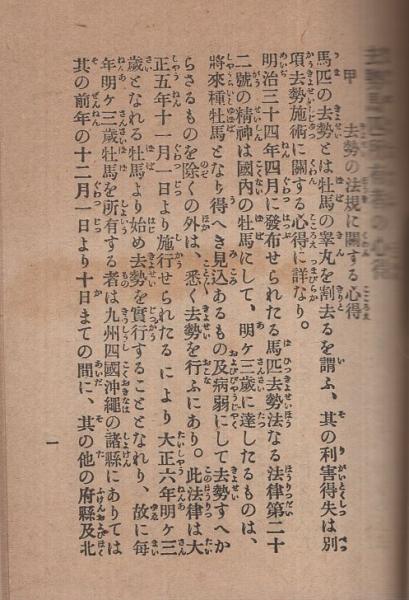 甲　去勢の法規に關する心得
馬匹の去勢とは牡馬の睾丸を割去るを謂ふ、其の利害得失は別
項去勢施術に關する心得に詳なり。
明治三十四年四月に發布せられたる馬匹去勢法なる法律第二十
二號の精神は國內の牡馬にして、明ケ三歲に達したるものは、
將來種牡馬となり得へき見込あるもの及病弱にして去勢すへか
らさるものを除くの外は、悉く去勢を行ふにあり。此法律は大
正五年十一月一日より施行せられたるにより大正六年明ケ三
歲となれる牡馬より始め去勢を實行することとなれり、故に每
年明ケ三歲牡馬を所有する者は九州四國沖繩の諸縣にありては
其の前年の十二月一日より十日までの間に、其の他の府縣及北
一